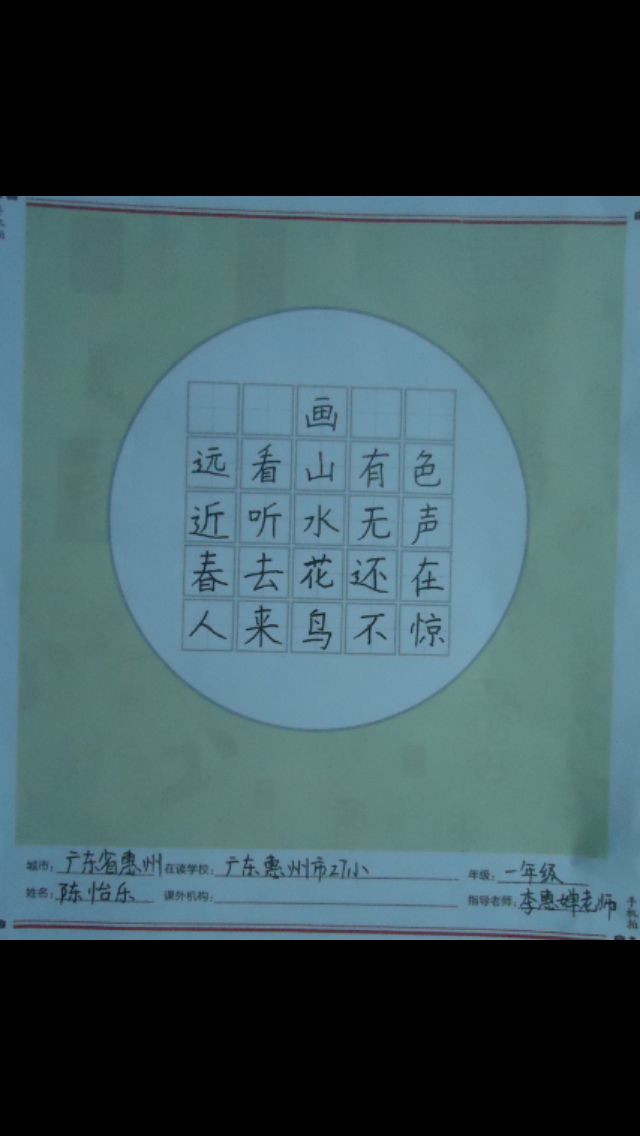 画
远看山有色
近听水无声
春去花还在
人来鸟不惊
城市：广东省惠州 在读学校：广东惠州市27小 年级：一年级
姓名：陈怡乐 课外机构： 指导老师：李惠婵老师